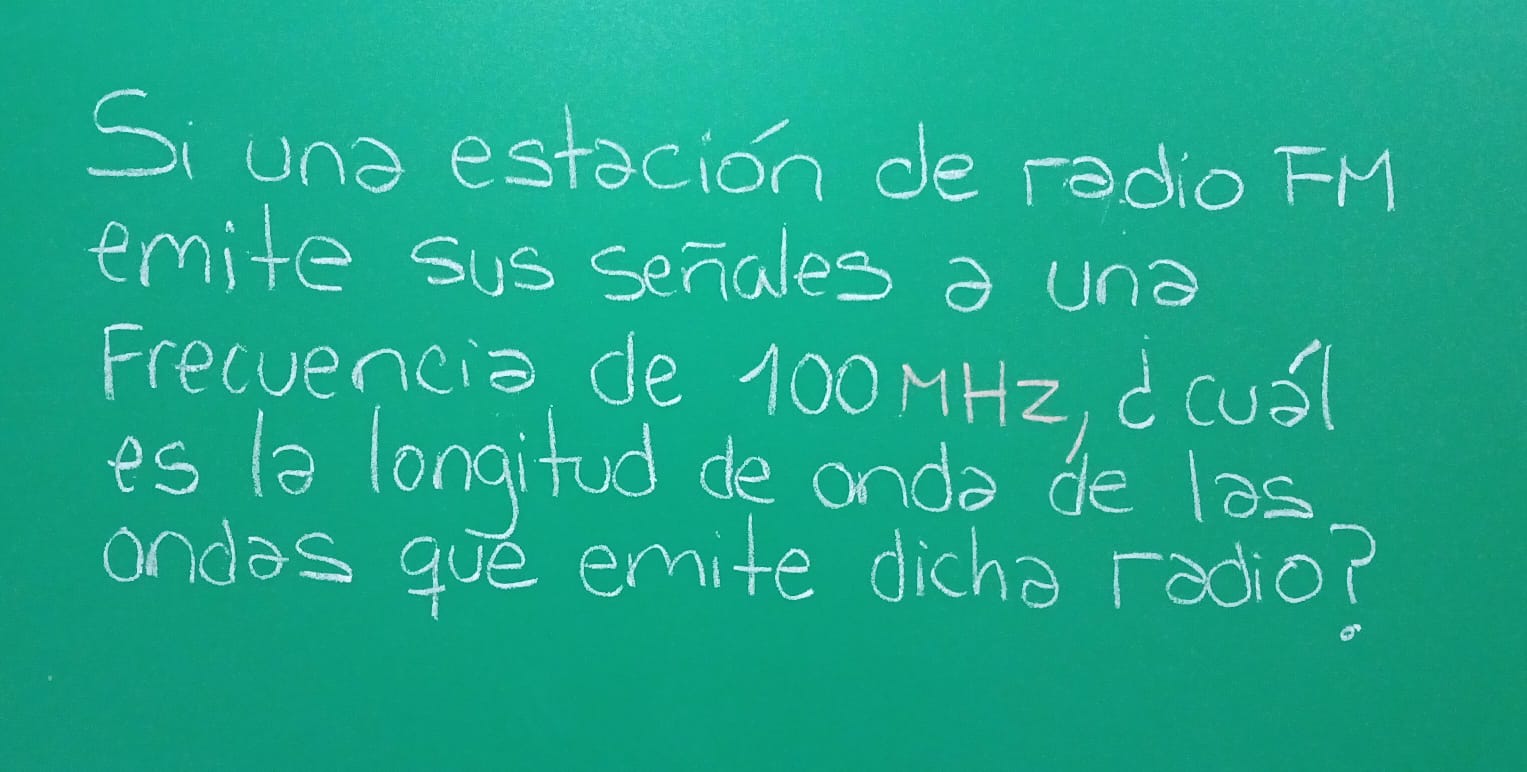 Si una estación de radio FM
emite sus señales a una
Frecuencia de 100 MHz, ¿cuál
es la longitud de onda de las
ondas que emite dicha radio?